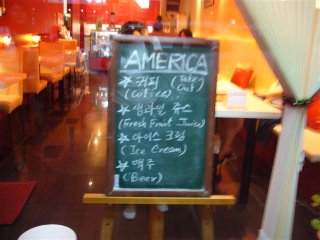 AMERICA
☆ 커피 (Take Out)
(Coffee)
☆ 생과일 쥬스
(Fresh Fruit Juice)
☆ 아이스크림
(Ice Cream)
☆ 맥주
(Beer)